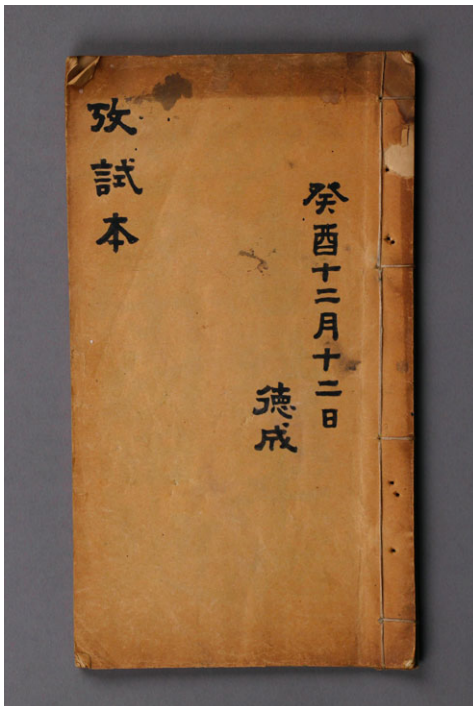 癸酉十二月十二日
徳成
攷試本